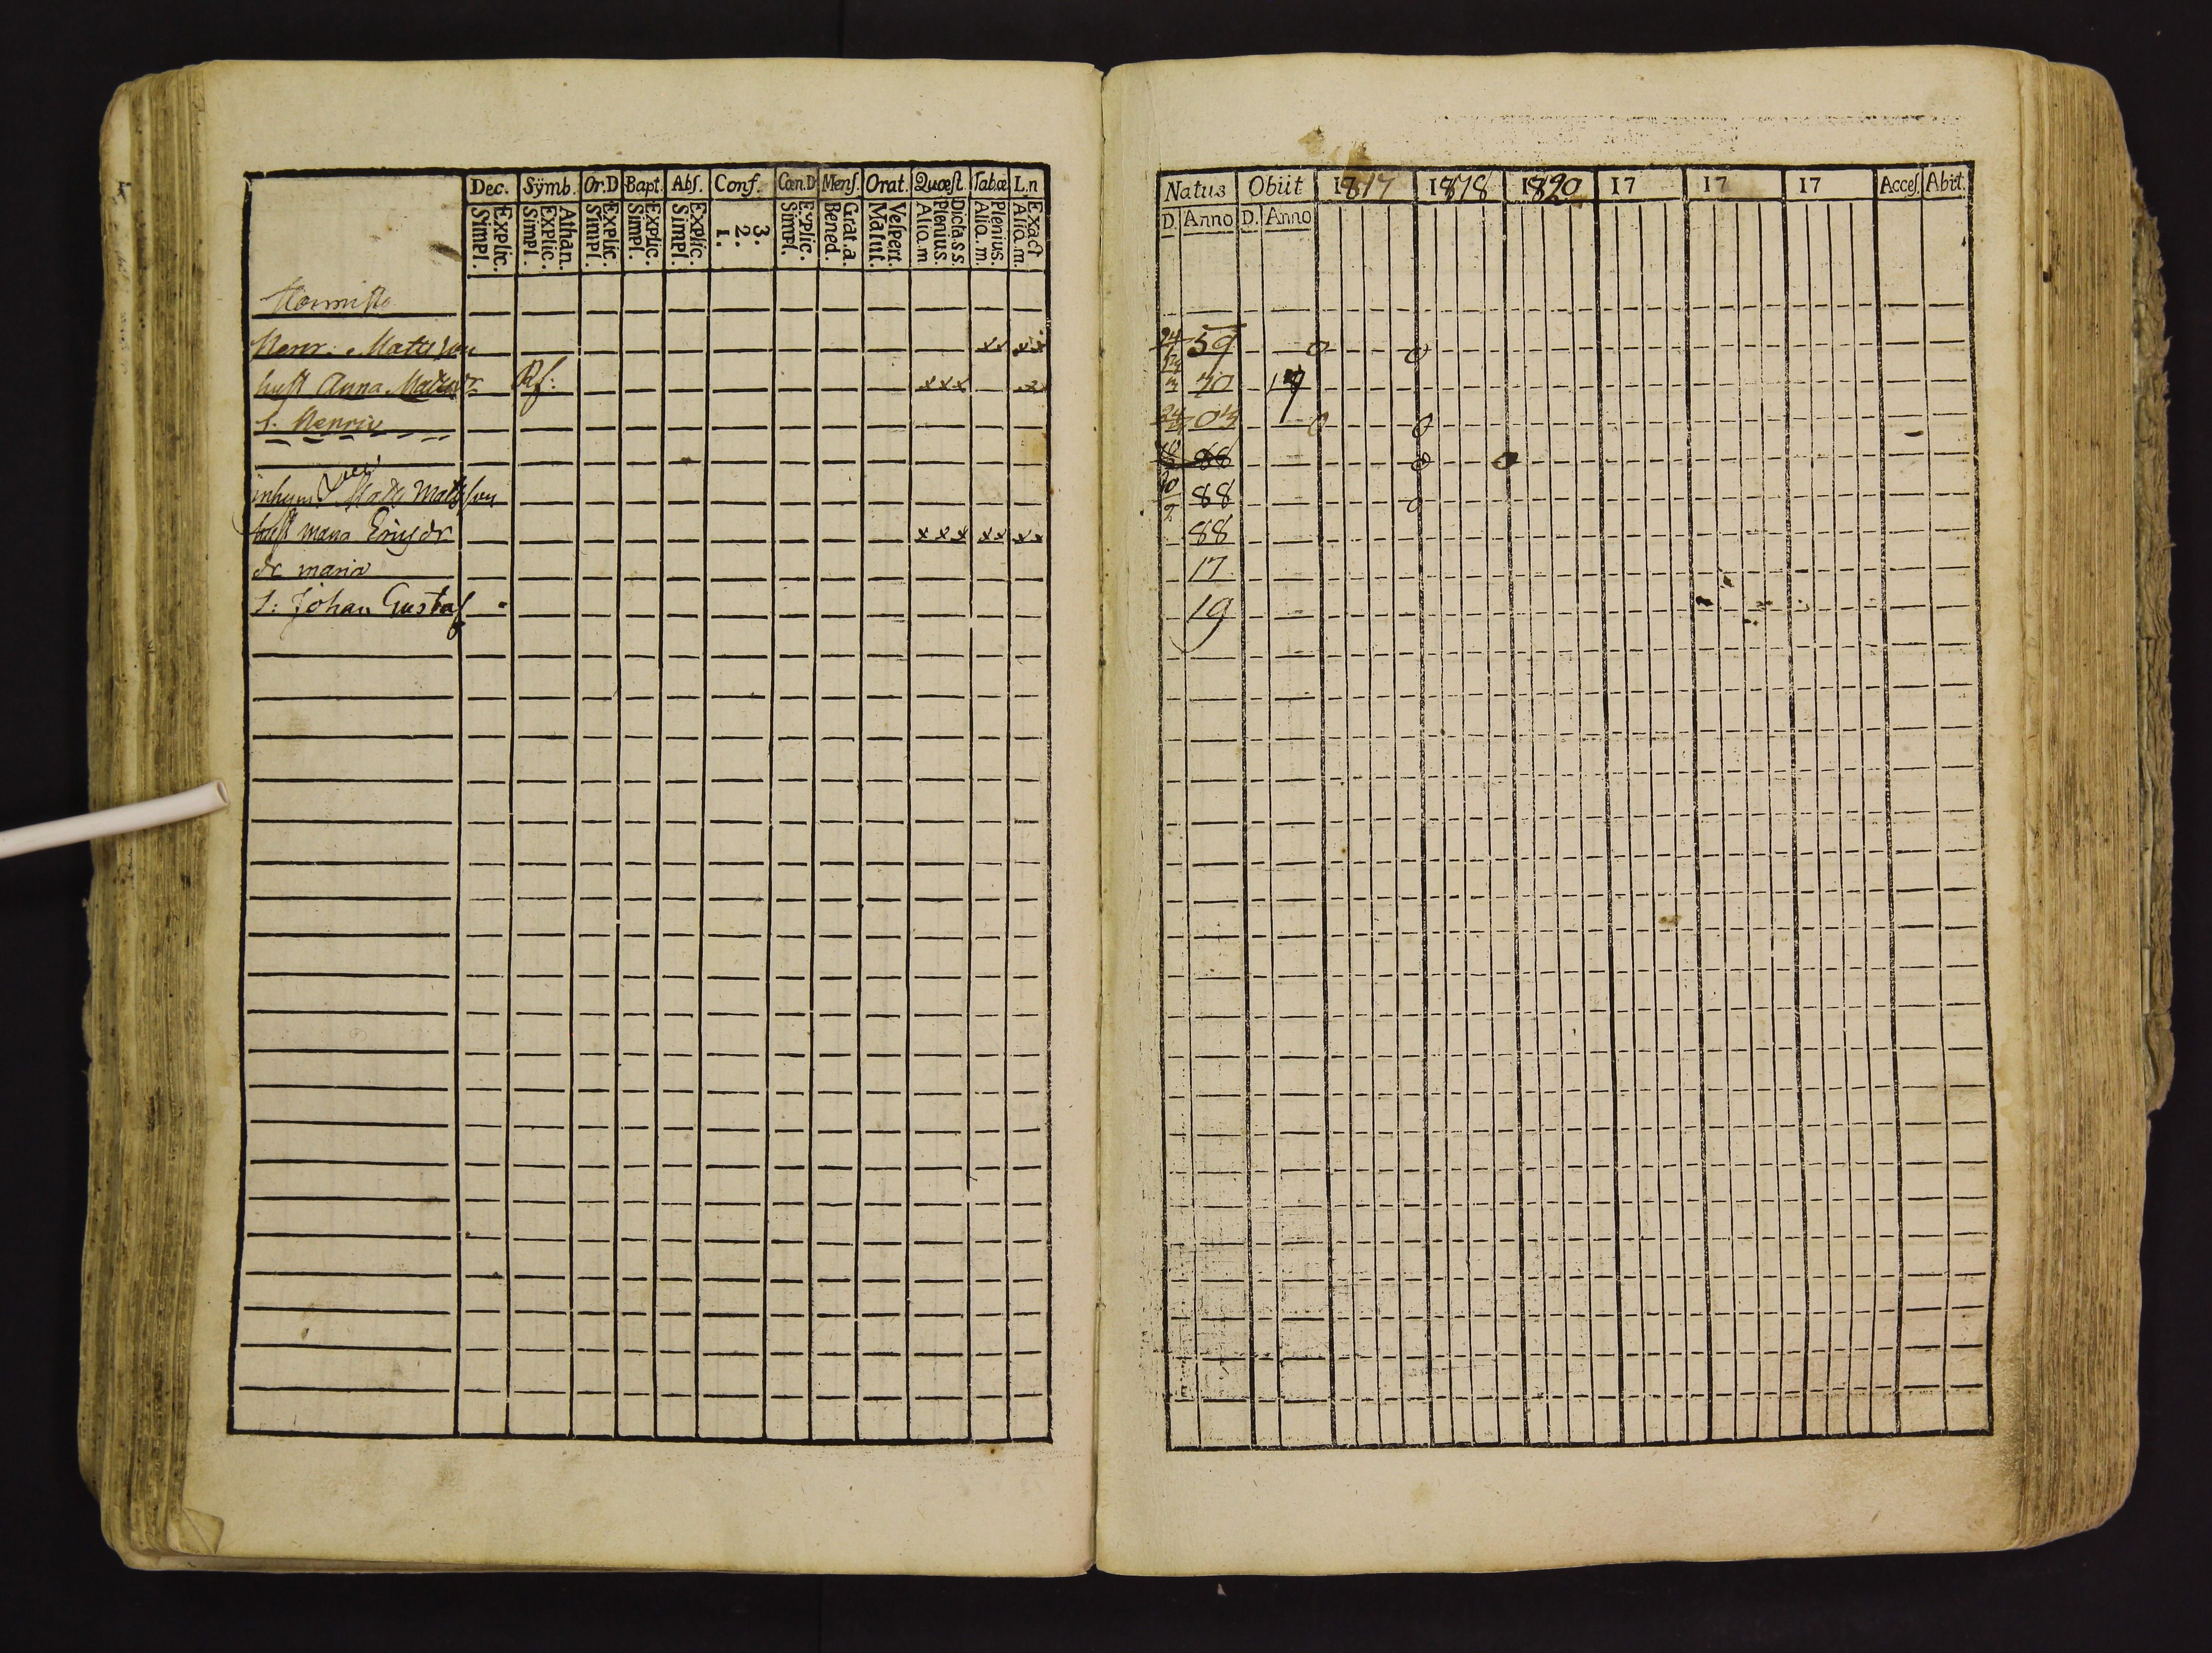 Dec. Sÿmb. Or.D Bapt. Abſ. Conf. Cœn.D Menſ. Orat. Quæſt. Tab.æ L.n
Explic. Simpl. Athan. Explic. Simpl. Explic. Simpl. Explic. Simpl. Explic. Simpl. 3. 2. 1. Explic. Simpl. Grat.a. Bened. Veſpert. Matut. Dicta.s s. Plenius. Aliq.m Plenius. Aliq.m. Exact Aliq.m.
Henr. Matts son xx xx
huſt Anna Rf: xxx
S. Henric
inhyses Matts Matts son
huſt maria Ericsdr xxx xx xx
dr maria
S: Johan Gustaf
Natus Obiit 1817 1818 1820 17 17 17 Acceſ. Abiit.
D. Anno D. Anno
24 59 0 0
3 70 17
24 03 0 0
88 0 0
10/2 88 0
88
17
19